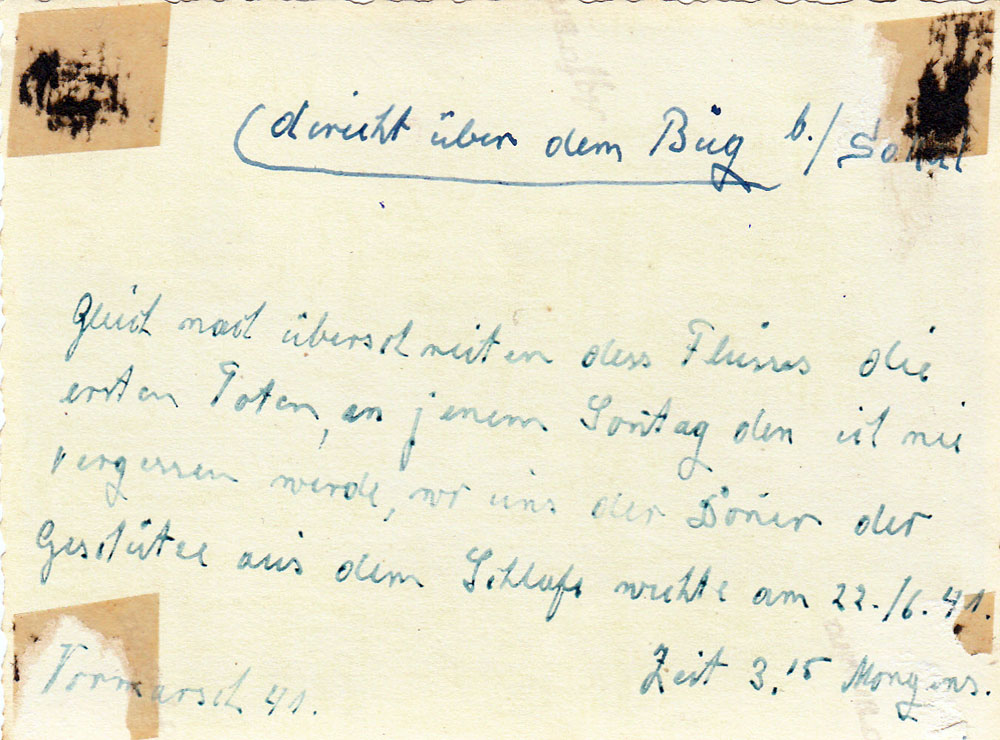 (direckt über dem Büg b./ Sokal
Gleich nach überschreiten dess Flusses die
ersten Toten, an jenem Sontag den ich nie
vergessen werde, wo uns der Doner der
Geschütze aus dem Schlafe wekte am 22./6. 41.
Zeit 3.15 Morgens.
Vormarsch 41.